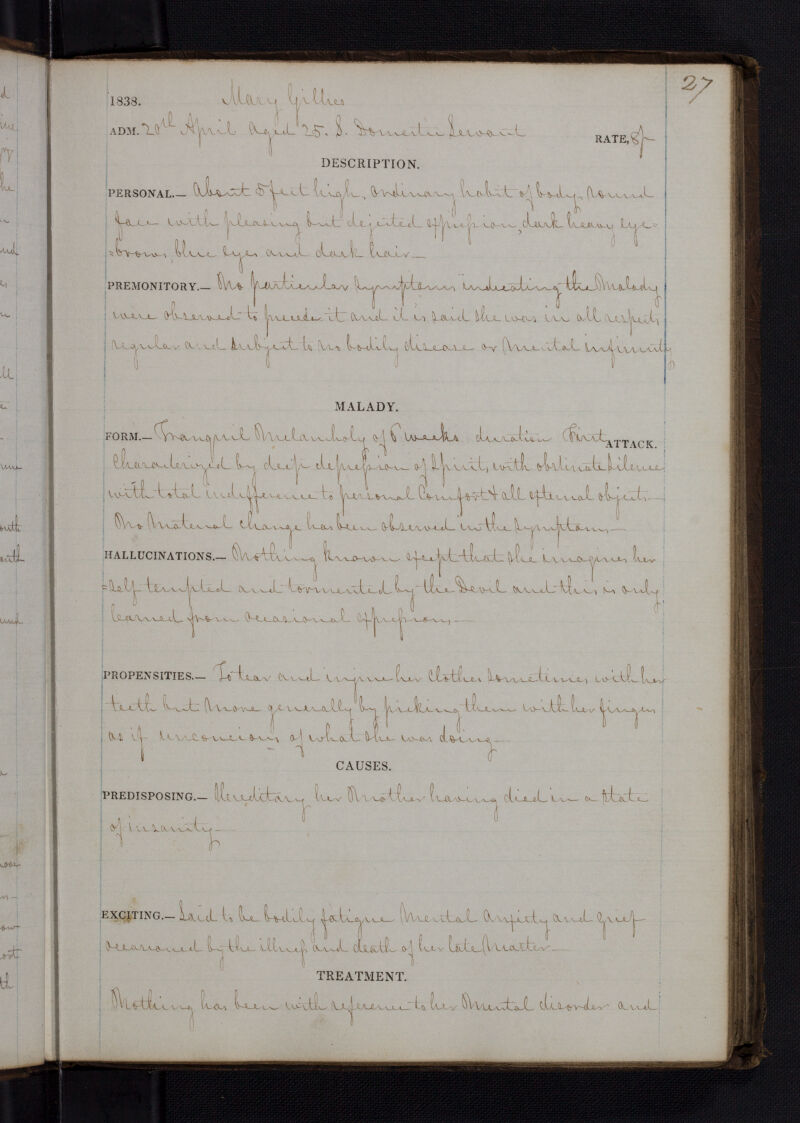 27
1838. Mary Gillies
ADM. 20th April Aged 25. S. Domestic Servant RATE, 8/-
DESCRIPTION.
PERSONAL.— About 5 feet high, Ordinary habit of body, Round
face with pleasing but dejected expression, dark heavy eye=
=brows, blue eyes and dark hair—
PREMONITORY.— No particular Symptoms indicating the Malady
were observed to precede it and it is said she was in all respects
regular and Subject to no bodily disease or Mental infirmity
MALADY.
FORM.— Tranquil Melancholy of 6 weeks duration First ATTACK.
Characterized by deep depression of Spirits, with obstinate Silence
with total indifference to personal Comfort & all external objects—
No Material change has been observed in the Symptoms—
HALLUCINATIONS.— Nothing known except that she imagines her
=self tempted and tormented by the Devil and this is only
learned from occasional expressions—
PROPENSITIES.— To tear and injure her Clothes Sometimes with her
teeth but More generally by picking them with her fingers
as if unconcious of what she was doing—
CAUSES.
PREDISPOSING.— Hereditary her Mother having died in a State
of insanity—
EXCITING.— Said to be bodily fatigue Mental Anxiety and Grief
occasioned by the illness and death of her late Master—
TREATMENT.
Nothing has been with reference to her Mental disorder and